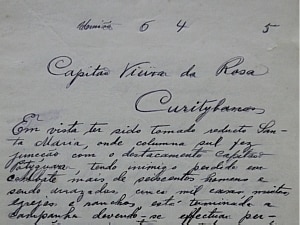 União 6 4 5
Capitão Vieira da Rosa
Curitybanos
Em vista ter sido tomado reducto San-
ta Maria, onde columna sul fez
juncção com o destacamento Capitão
Potyguara, tendo inimigo perdido em
combate mais de seiscentos homens e
sendo arrazadas, cinco mil casas, muitas
egrejas e ranchos, está terminada a
campanha devendo-se effectuar per-